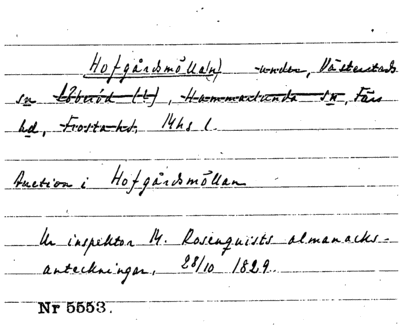 Hofgårdsmölla(n) under, Västerstads
sn Löberöd (?), Hammarlunda sn, Färs
hd, Frosta hd, Mhs l.
Auction i Hofgårdsmöllan
Ur inspektor M. Rosenquists almanacks-
anteckningar, 28/10 1829.
Nr 5553.